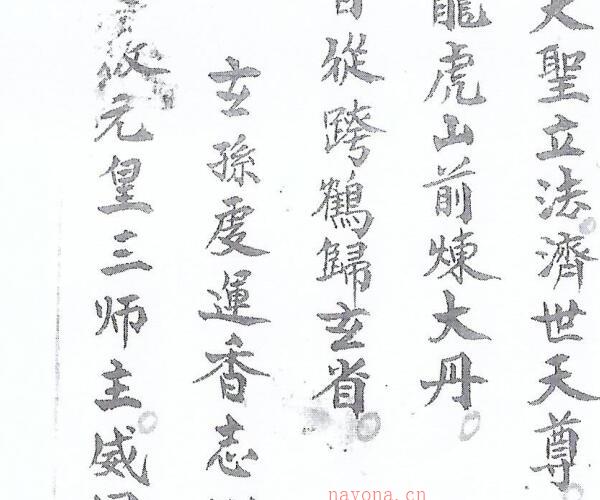 大聖立法濟世天尊
龍虎山前煉大丹
從跨鶴歸玄省
玄孫慶運香志
元皇三师主威
nayona.cn